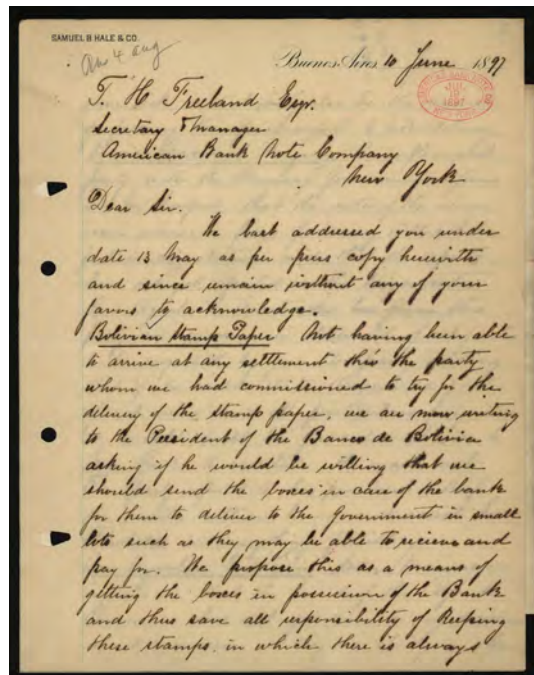 SAMUEL B HALE & CO.
Ans 4 aug
Buenos Aires 10 June 1897
T. H Freeland Esqr.
Secretary & Manager
American Bank Note Company
New York
Dear Sir.
We last addressed you under
date 13 May as per press copy herewith
and since remain without any of your
favors to acknowledge.
Bolivian Stamp Paper Not having been able
to arrive at any settlement thro the party
whom we had commissioned to try for the
delivery of the stamp paper, we are now writing
to the President of the Banco de Bolivia
asking if he would be willing that we
should send the boxes in care of the bank
for them to deliver to the Government in small
lots such as they may be able to recieve and
pay for. We propose this as a means of
getting the boxes in possession of the Bank
and thus save all responsibility of keeping
these stamps, in which there is always